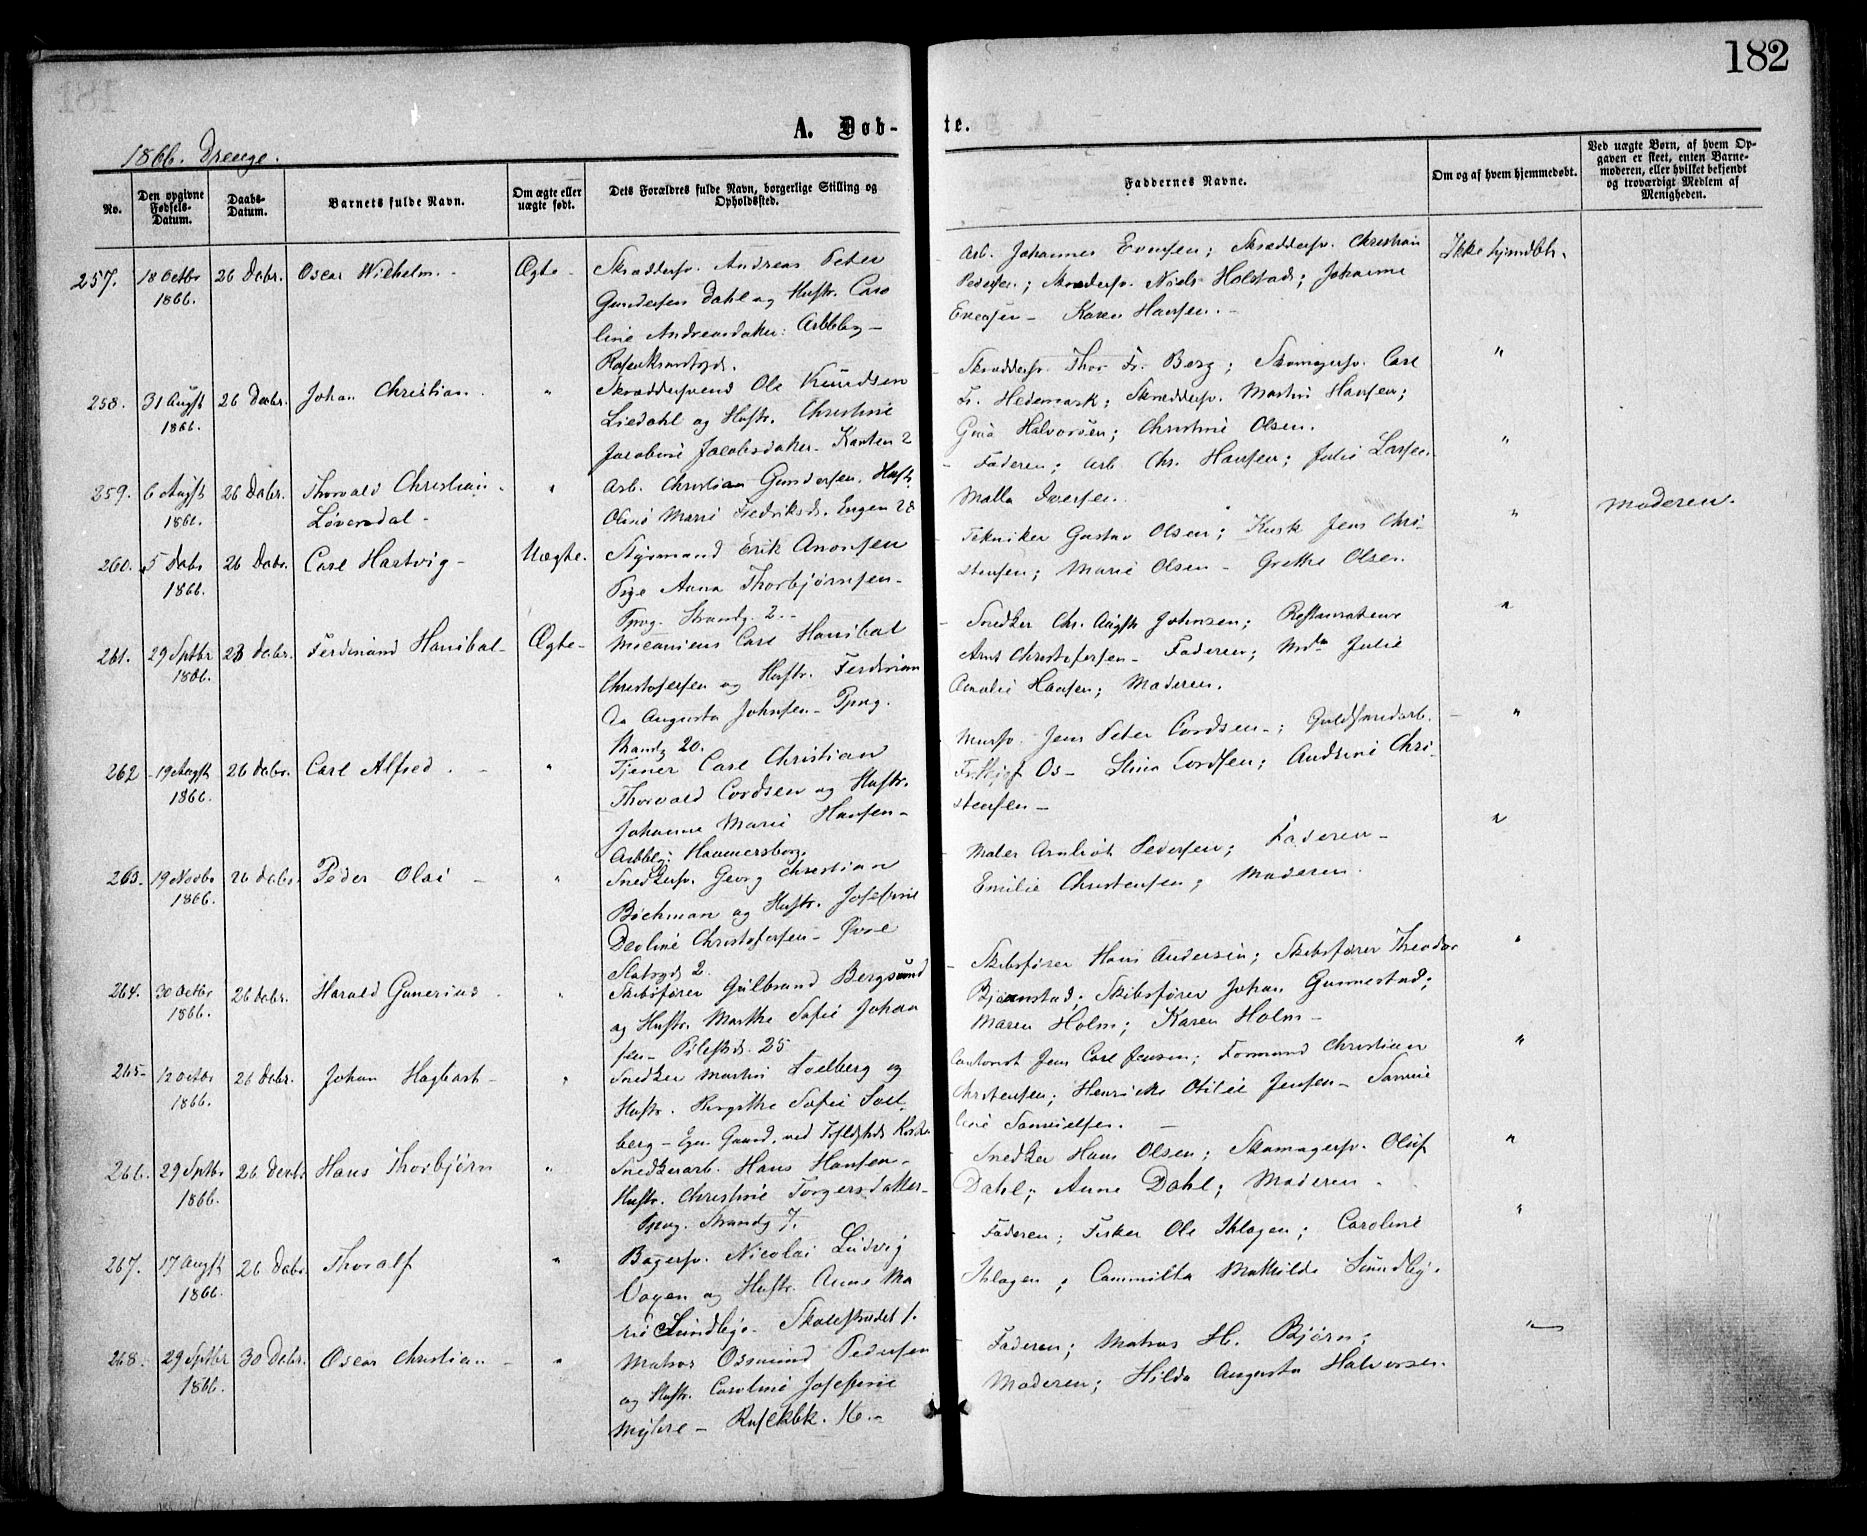 182
A. Døb-te.
1866. Drenge.
No.
Den opgivne Fødsels-Datum.
Daabs-Datum.
Barnets fulde Navn.
Om ægte eller uægte født.
Dets Forældres fulde Navn, borgerlige Stilling og Opholdssted.
Faddernes Navne.
Om og af hvem hjemmedøbt.
Ved uægte Børn, af hvem Opgaven er skeet, enten Barnemoderen, eller hvilket bekjendt og troværdigt Medlem af Menigheden.
257. 18 Octbr 1866. 26 Decbr. Oscar Wilhelm. Ægte
Skrædersv. Andreas Peter
Gundersen Dahl og Hustr. Caro
line Andreasdatter: Arbbby
Arb. Johannes Evensen; Skræddersv. Christian
Pedersen; Skrædersv. Niels Holstad; Johanne
Evensen - Karen Hansen.
Ikke hjemdøbt.
258. 31 Augst 1866. 26 Decbr. Johan Christian. "
Skræddersvend Ole Knudsen
Liedahl og Hustr. Christine
Jacobine Jacobsdatter. Kanten 2
Skræddersv. Thor Fr. Berg; Skomagersv. Carl
Fr. Hedemark; Skræddersv. Martin Hansen;
Gina Halvorsen; Christine Olsen.
"
259. 6 Augst 1866. 26 Decbr. Thorvald Christian
Løversdal "
Arb. Christian Gundersen. Hustr.
Oline Marie Fredriksd. Engen 28
Faderen; Arb. Chr. Hansen; Julie Larsen.
Malla Iversen.
"
260. 5 Decbr 1866. 26 Decbr. Carl Hartvig - Uægte.
Styrmand Erik Aronsen
Pige Anna Thorbjørnsen
Ppvg. Strandg 2.
Tekniker Gustav Olsen; Kusk Jens Chri-
stensen; Marie Olsen - Grethe Olsen.
"
Moderen.
261. 29 Septbr 1866. 23 Decbr. Ferdinand Hanibal - Ægte
Mecanicus Carl Hanibal
Christofersen og Hustr. Ferdinan
da Augusta Johnsen - Ppvg.
Strandg 20.
Snedker Chr. Augst Johnsen; Restaurateur
Arnt Christofersen - Faderen; Mda Julie
Amalie Hansen; Moderen.
"
262 19 Augst 1866. 26 Decbr. Carl Alfred. "
Tjener Carl Christian
Thorvald Cordsen og Hustr.
Johanne Marie Hansen
Arbbg: Hammersborg
Mursv. Jens Peter Cordsen; Guldsmedarb.
Os - Stina Cordsen; Andrine Chri-
stensen
"
263. 19 Novbr 1866. 26 Decbr. Peder Olai "
Snedkersv. Georg Christian
Bøchman og Hustr. Josefine
Deoline Christofersen - Øvre
Slotsgd 2.
Maler Arnliot Pedersen; Faderen
Emilie Christensen; Moderen.
"
264. 30 Octbr 1866. 26 Decbr. Harald Gunerius. "
Skibsfører Gulbrand Bergsund
og Hustr. Marthe Sofie Johan
sen - Pilestrd. 25
Skibsfører Hans Andersen; Skibsfører Theodor
Bjørnstad; Skibsfører Johan Gunnestad;
Maren Holm; Karen Holm
"
265 12 Octbr 1866. 26 Decbr. Johan Hagbart "
Snedker Martin Soelberg og
Hustr. Birgitte Sofie Soel
berg - Egen Gaard
Contorist Jens Carl Jensen; Formand Christian
Christensen; Henricke Otilie Jensen - Samue
line Samuelsen.
"
266. 29 Septbr 1866. 26 Decbr. Hans Thorbjørn "
Snedkerarb. Hans Hansen
Hustr. Christine Torgersdatter
Ppvg. Strandg 7.
Snedker Hans Olsen; Skomagersv. Oluf
Dahl; Anne Dahl; Moderen.
"
267. 17 Augst 1866. 26 Decbr. Thoralf "
Bagersv. Nicolai Ludvig
og Hustr. Anne Ma
rie Sundbye. Skolestrædet 1.
Faderen; Fisker Ole; Caroline
Cammilla Mathilde Sundby.
"
268. 29 Septbr 1866. 30 Decbr. Oscar Christian "
Matros Osmund Pedersen
og Hustr. Caroline Josefine
Myhre - 16.
Faderen; Matros H. Bjørn;
Moderen; Hilda Augusta Halvorsen.
"